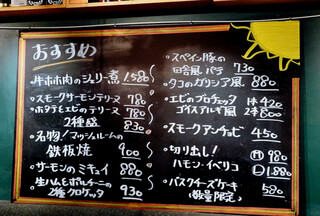 おすすめ
牛ホホ肉のシェリー煮 1.580
・スモークサーモンテリーヌ 780
・ホタテとエビのテリーヌ 780
2種盛 830
・名物！マッシュルームの
鉄板焼 900
・サーモンのミキュイ 880
・生ハムとポルチーニの
2種クロケッタ 930
・スペイン豚の
田舎風パテ 730
・タコのガリシア風 880
・エビのブロチェッタ 1本 420
ゴイスアレギ風 2本 800
・スモークアンチョビ 450
・切り出し！ Ⓗ 980
ハモン・イベリコ Ⓛ 1.880
・バスクチーズケーキ 580
(数量限定)